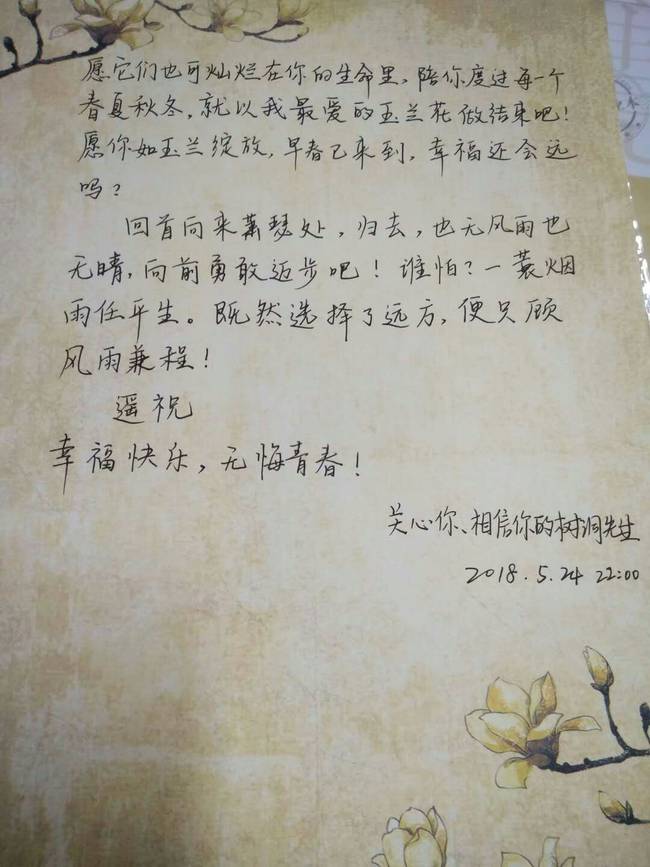 愿它们也可灿烂在你的生命里，陪你度过每一个
春夏秋冬，就以我最爱的玉兰花做结束吧！
愿你如玉兰绽放，早春已来到，幸福还会远
吗？
回首向来萧瑟处，归去，也无风雨也
无晴，向前勇敢迈步吧！谁怕？一蓑烟
雨任平生。既然选择了远方，便只顾
风雨兼程！
遥祝
幸福快乐，无悔青春！
关心你、相信你的树洞先生
2018.5.24 22:00